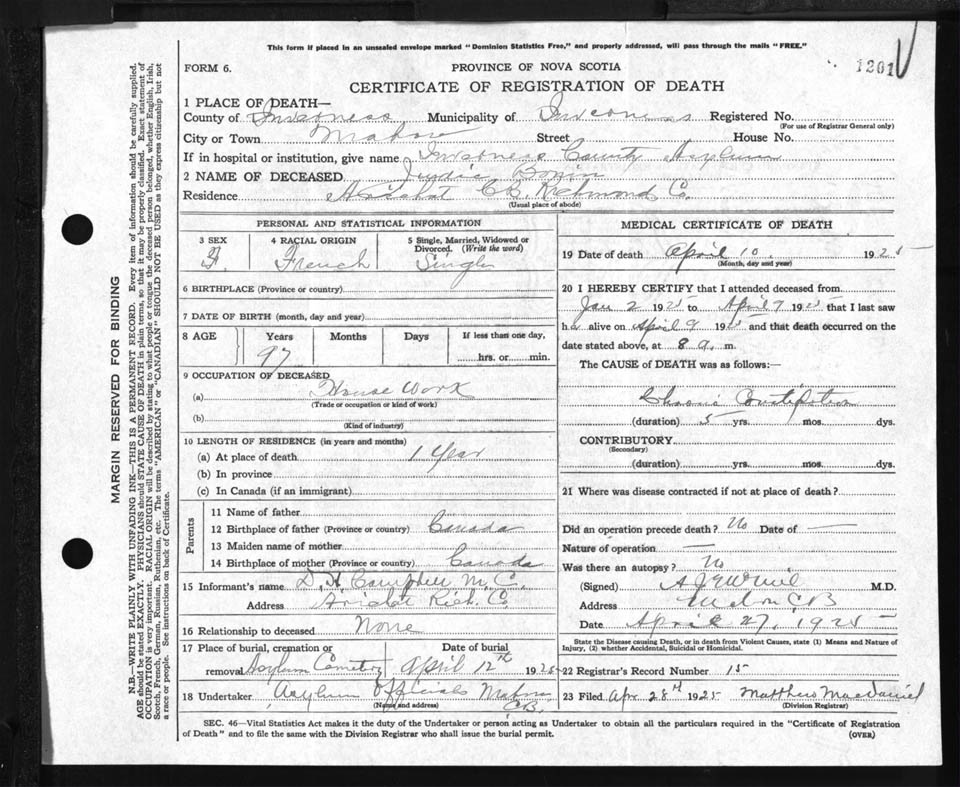 This form if placed in an unsealed envelope marked "Dominion Statistics Free," and properly addressed, will pass through the mails "FREE."
FORM 6.
PROVINCE OF NOVA SCOTIA
1201
CERTIFICATE OF REGISTRATION OF DEATH
1 PLACE OF DEATH—
County of Inverness Municipality of Inverness Registered No.
(For use of Registrar General only)
City or Town Mabou Street House No.
If in hospital or institution, give name Inverness County Asylum
2 NAME OF DECEASED
Residence Arichat C.B. Richmond Co.
(Usual place of abode)
PERSONAL AND STATISTICAL INFORMATION
3 SEX 4 RACIAL ORIGIN 5 Single, Married, Widowed or Divorced. (Write the word)
F. French Single
6 BIRTHPLACE (Province or country)
7 DATE OF BIRTH (month, day and year)
8 AGE Years Months Days If less than one day,
97 hrs. or min.
9 OCCUPATION OF DECEASED
(a) House Work
(Trade or occupation or kind of work)
(b)
(Kind of industry)
10 LENGTH OF RESIDENCE (in years and months)
(a) At place of death 1 Year
(b) In province
(c) In Canada (if an immigrant)
Parents
11 Name of father
12 Birthplace of father (Province or country) Canada
13 Maiden name of mother
14 Birthplace of mother (Province or country) Canada
15 Informant's name D. H. Campbell M. C.
Address Arichat Rich. Co.
16 Relationship to deceased None
17 Place of burial, cremation or Date of burial
removal Asylum Cemetry April 12th 1925
18 Undertaker Asylum Officials Mabou
(Name and address) CB.
MEDICAL CERTIFICATE OF DEATH
19 Date of death April 10 1925
(Month, day and year)
20 I HEREBY CERTIFY that I attended deceased from
Jan 2 1925 to April 9 1925 that I last saw
her alive on April 9 1925 and that death occurred on the
date stated above, at 8 a. m.
The CAUSE of DEATH was as follows:—
Chronic Constipation
(duration) 5 yrs. mos. dys.
CONTRIBUTORY
(Secondary)
(duration) yrs. mos. dys.
21 Where was disease contracted if not at place of death?
Did an operation precede death? No Date of —
Nature of operation —
Was there an autopsy? No
(Signed) M.D.
Address CB
Date April 27, 1925
State the Disease causing Death, or in death from Violent Causes, state (1) Means and Nature of
Injury, (2) whether Accidental, Suicidal or Homicidal.
22 Registrar's Record Number 15
23 Filed Apr 28th 1925 Matthew MacDaniel
(Division Registrar)
SEC. 46—Vital Statistics Act makes it the duty of the Undertaker or person acting as Undertaker to obtain all the particulars required in the "Certificate of Registration
of Death" and to file the same with the Division Registrar who shall issue the burial permit.
(OVER)
MARGIN RESERVED FOR BINDING
N.B.—WRITE PLAINLY WITH UNFADING INK—THIS IS A PERMANENT RECORD. Every item of information should be carefully supplied.
AGE should be stated EXACTLY. PHYSICIANS should STATE CAUSE OF DEATH in plain terms, so that it may be properly classified. Exact statement of
OCCUPATION is very important. RACIAL ORIGIN will be described by stating to what people or tongue the deceased person belonged, whether English, Irish,
Scotch, French, German, Russian, Ruthenian, etc. The terms "AMERICAN" or "CANADIAN" SHOULD NOT BE USED as they express citizenship but not
a race or people. See instructions on back of Certificate.